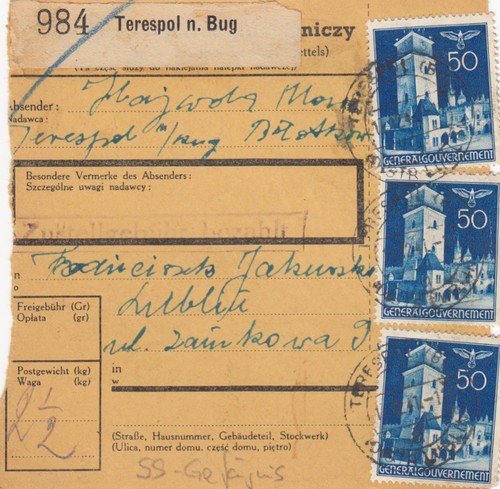 984 Terespol n. Bug
niczy
(Ta część służy do naklejania nalepki nadawczej) ettels)
Absender:
Nadawca:
Hajwoda
Terespol n/Bug
Besondere Vermerke des Absenders:
Szczególne uwagi nadawcy:
Zustellgebühr bezahlt
Franciszek
Lublin
ul. Zamkowa 9
Freigebühr (Gr)
Opłata (gr)
Postgewicht (kg)
Waga (kg)
2 1/2
in
w
(Straße, Hausnummer, Gebäudeteil, Stockwerk)
(Ulica, numer domu, część domu, piętro)
SS-Gefängnis
50
GENERALGOUVERNEMENT
50
GENERALGOUVERNEMENT
50
GENERALGOUVERNEMENT